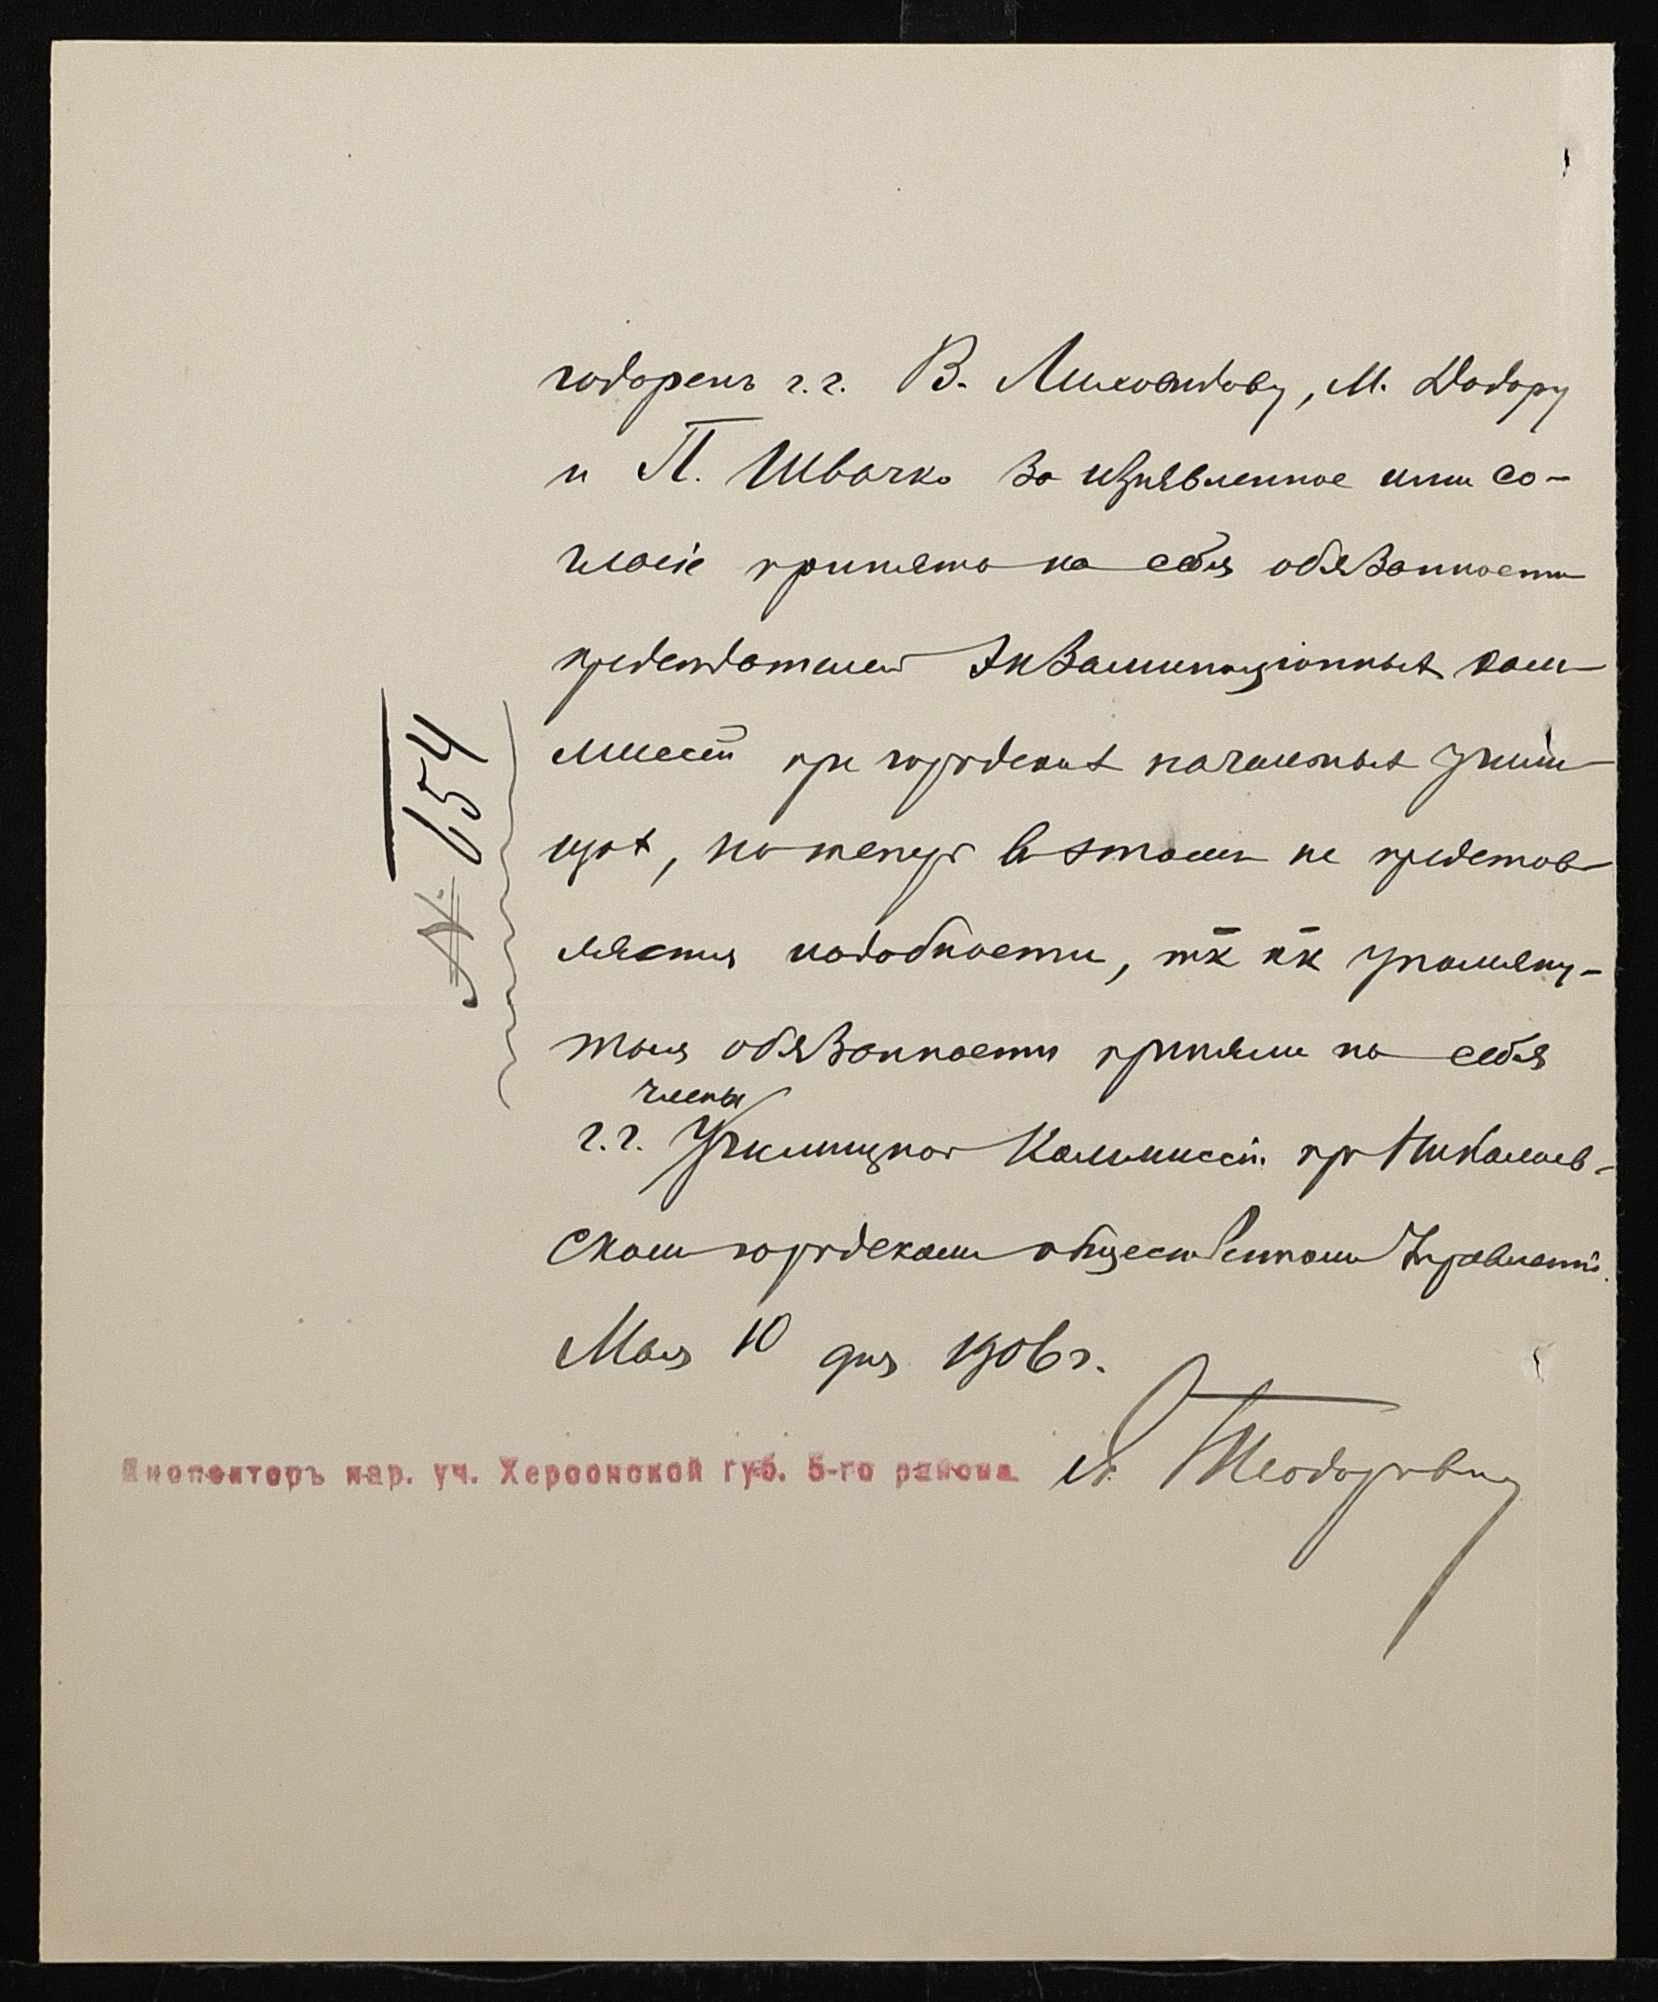 годаренъ г.г. В. Ликоидову, М. Додору
и П. Швачко за изъявленное ими со-
гласіе принять на себя обязанности
председателей экзаминаціонныхъ ком-
миссій при городскихъ начальныхъ учили-
щахъ, но теперь въ этомъ не представ-
ляется надобности, тк кк упомяну-
тыя обязанности приняли на себя
члены
г.г. Училищной Коммиссіи при Николаев-
скомъ городскомъ общественномъ Управленіи.
Мая 10 дня 1906 г.
Инспекторъ нар. уч. Херсонской губ. 5-го района А. Теодоровичъ
№ 654